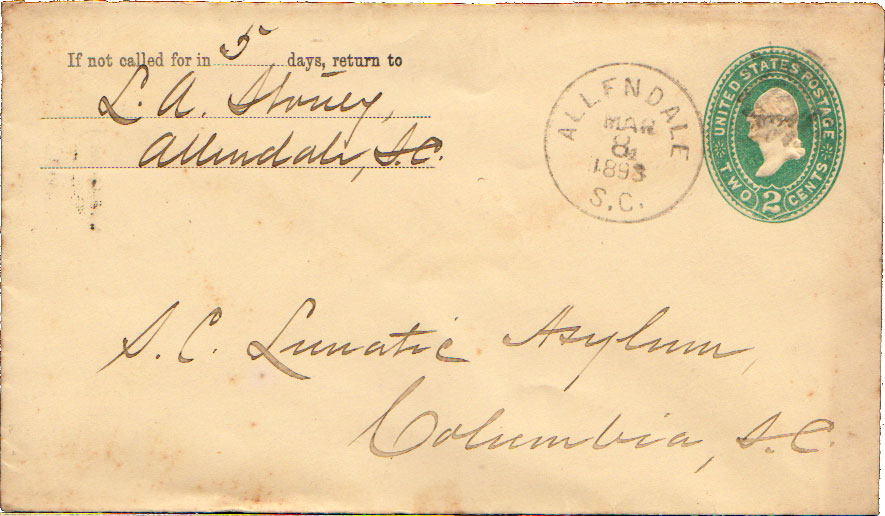 If not called for in 5 days, return to
L. A. Stoney,
Allendale, S.C.
ALLENDALE
MAR
8
1893
S.C.
UNITED STATES POSTAGE
TWO 2 CENTS
S. C. Lunatic Asylum,
Columbia, S.C.